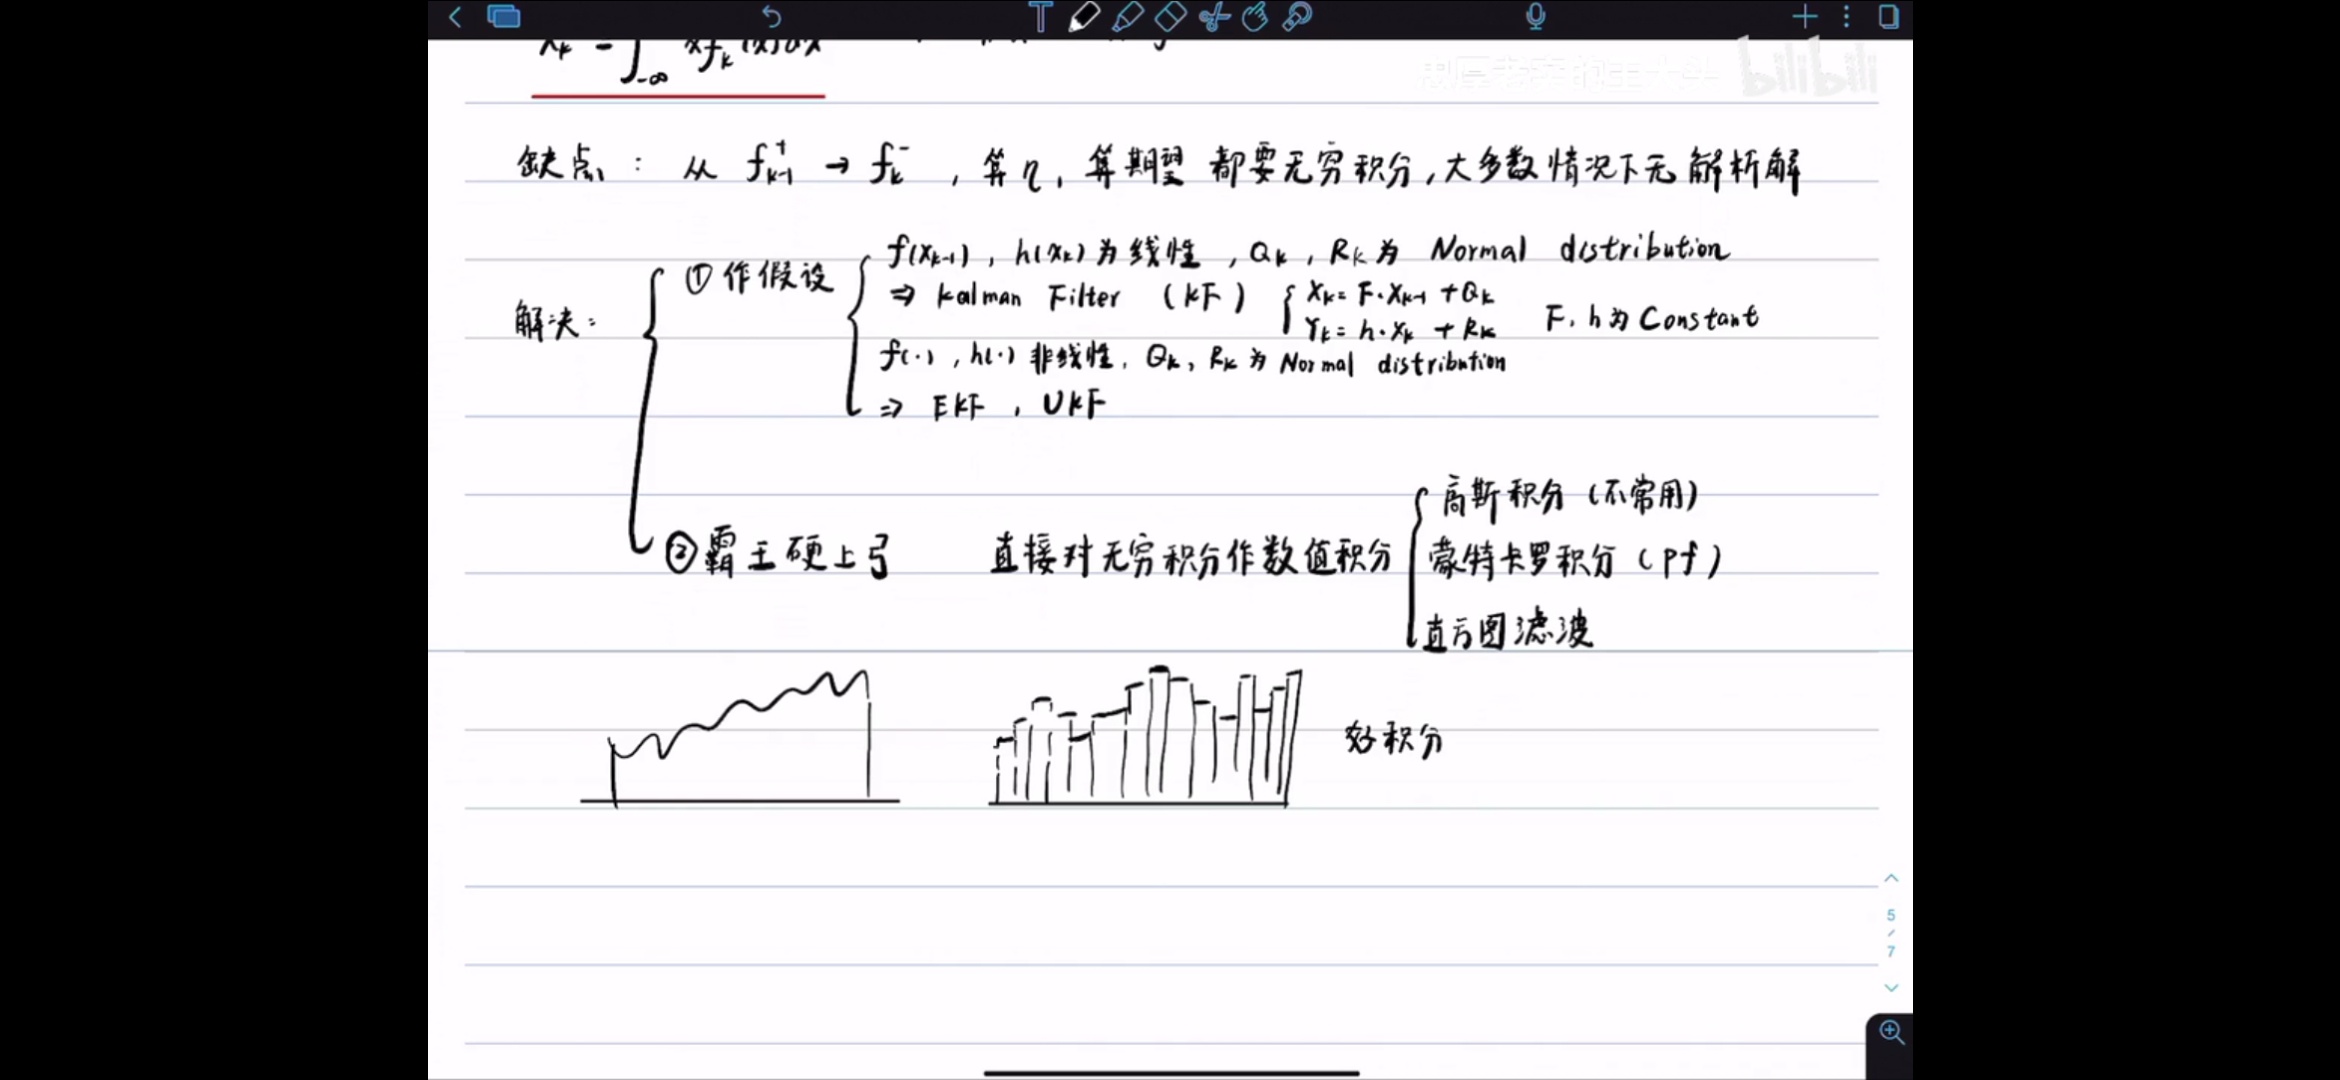 缺点：从 f⁺ₖ₋₁ → fₖ⁻，算η，算期望 都要无穷积分，大多数情况下无解析解
解决：
①作假设
f(Xₖ₋₁)，h(Xₖ)为线性，Qₖ，Rₖ为 Normal distribution
⇒ Kalman Filter （KF） Xₖ = F·Xₖ₋₁ + Qₖ
Yₖ = h·Xₖ + Rₖ
F，h为Constant
f(·)，h(·)非线性，Qₖ，Rₖ为Normal distribution
⇒ EKF，UKF
②霸王硬上弓 直接对无穷积分作数值积分
高斯积分（不常用）
蒙特卡罗积分（pf）
直方图滤波
好积分
5
/
7
bilibili